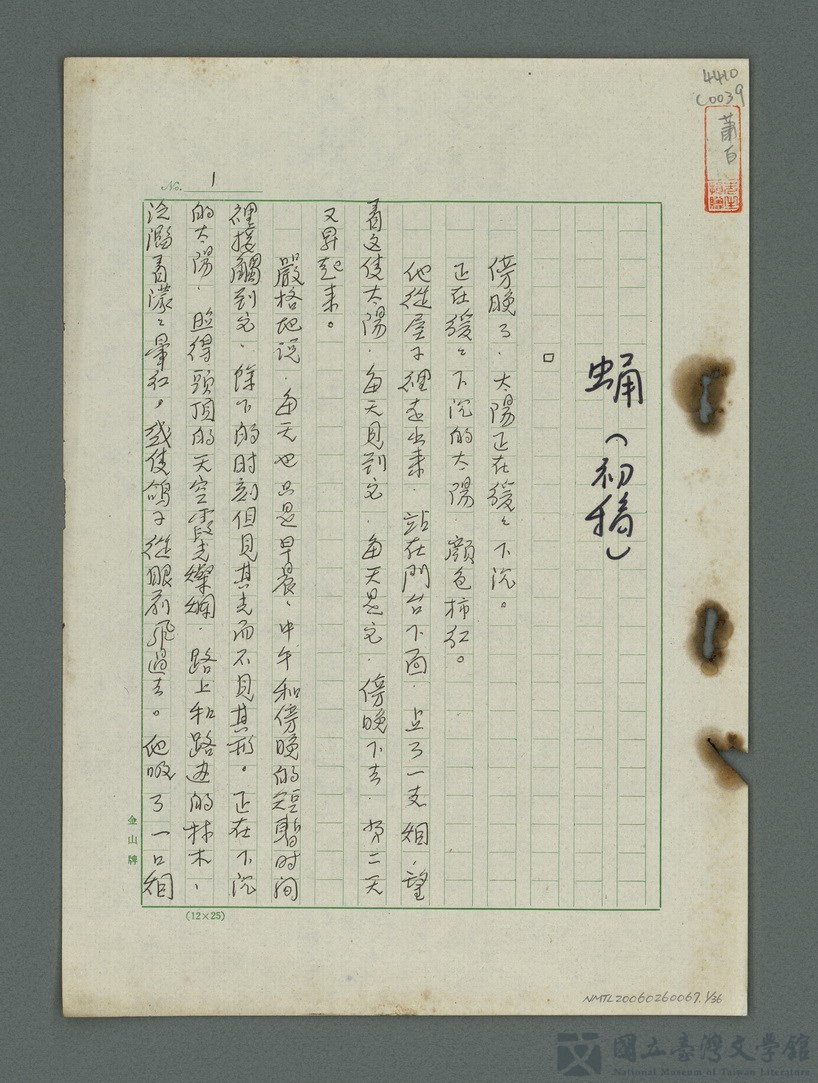 4410
C0039
蕭白
No. 1
蛹（初稿）
□
傍晚了．太陽正在緩々下沉。
正在緩々下沉的太陽．顏色柿红。
他從屋子裡走出来．站在門台下面．点了一支烟，望
着这隻太陽．每天見到它．每天是它．傍晚下去．第二天
又昇起来。
嚴格地说．每天也只是早晨、中午和傍晚的短暫时间
裡接觸到它、餘下的时刻但見其光而不見其形。正在下沉
的太陽．照得頭頂的天空霞光燦爛．路上和路边的林木、
泛濫着濛々暈红。幾隻鴿子從眼前飛過去。他吸了一口烟
金山牌
(12×25)
NMTL20060260069.1/36
國立臺灣文學館
National Museum of Taiwan Literature